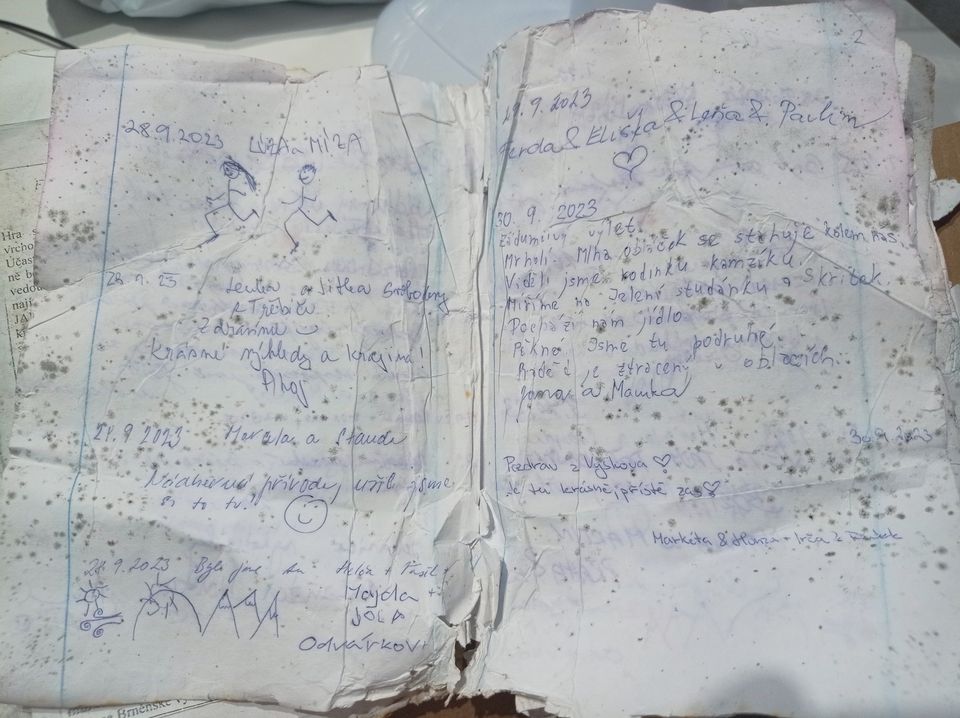 28.9.2023 LÍZA a MÍZA
28.9.23 Lenka a Jitka Svobodovy
z Třebíče
Zdravíme
Krásné výhledy a krajina!
Ahoj
28.9 2023 a Standa
Nádherná přírody, užili jsme
si to tu!
28.9.2023 Byli jsme tu +
Majda +
JOLA
Odvárkovi
2
29.9.2023
Ferda & Eliška & Leňa & Pavlín
30. 9. 2023
Zádumčivý výlet.
Mrholí. Mlha obláček se stahuje kolem nás.
Viděli jsme rodinku kamzíků.
Míříme na Jelení studánku a Skřítek
Pochází nám jídlo
Pěkné, jsme tu podruhé.
je ztracený v oblacích.
a Mamka
30.9.2023
Pozdrav z Vyškova
Je tu krásně, příště zas
Markéta & Honza +
Hra
vrcho
Účas
ně b
vedou
nají
JA
Brněnské vý